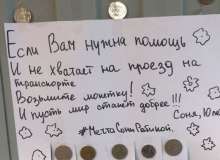 Если Вам нужна помощь
И не хватает на проезд на
транспорте
Возьмите монетку!
И пусть мир станет добрее!!!
Соня, 10